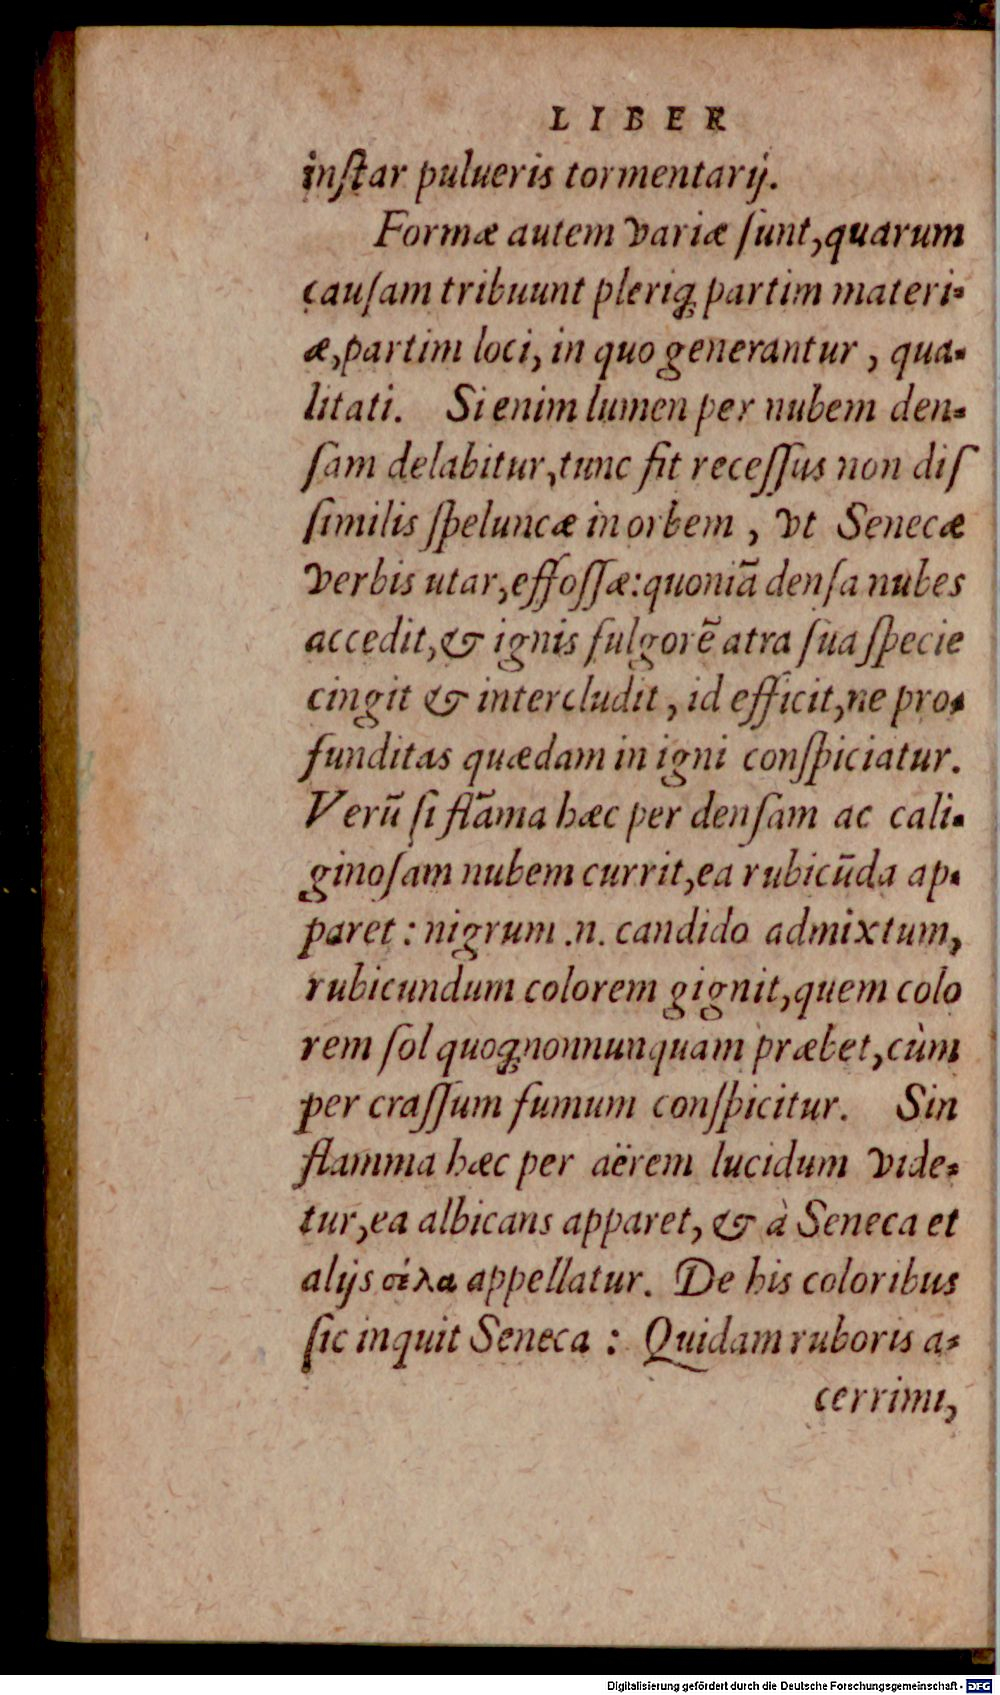 LIBER
inſtar pulueris tormentarij.
Formæ autem variæ ſunt, quarum
cauſam tribuunt pleriq; partim materi-
æ, partim loci, in quo generantur, qua-
litati. Si enim lumen per nubem den-
ſam delabitur, tunc fit receſſus non diſ
ſimilis ſpeluncæ in orbem, vt Senecæ
verbis utar, effoſſæ: quoniã denſa nubes
accedit, & ignis fulgorẽ atra ſua ſpecie
cingit & intercludit, id efficit, ne pro-
funditas quædam in igni conſpiciatur.
Verũ ſi flãma hæc per denſam ac cali-
ginoſam nubem currit, ea rubicũda ap-
paret: nigrum .n. candido admixtum,
rubicundum colorem gignit, quem colo
rem ſol quoq; nonnunquam præbet, cùm
per craſſum fumum conſpicitur. Sin
flamma hæc per aërem lucidum vide-
tur, ea albicans apparet, & à Seneca et
alijs σέλα appellatur. De his coloribus
ſic inquit Seneca: Quidam ruboris a-
cerrimi,
Digitalisierung gefördert durch die Deutsche Forschungsgemeinschaft - DFG